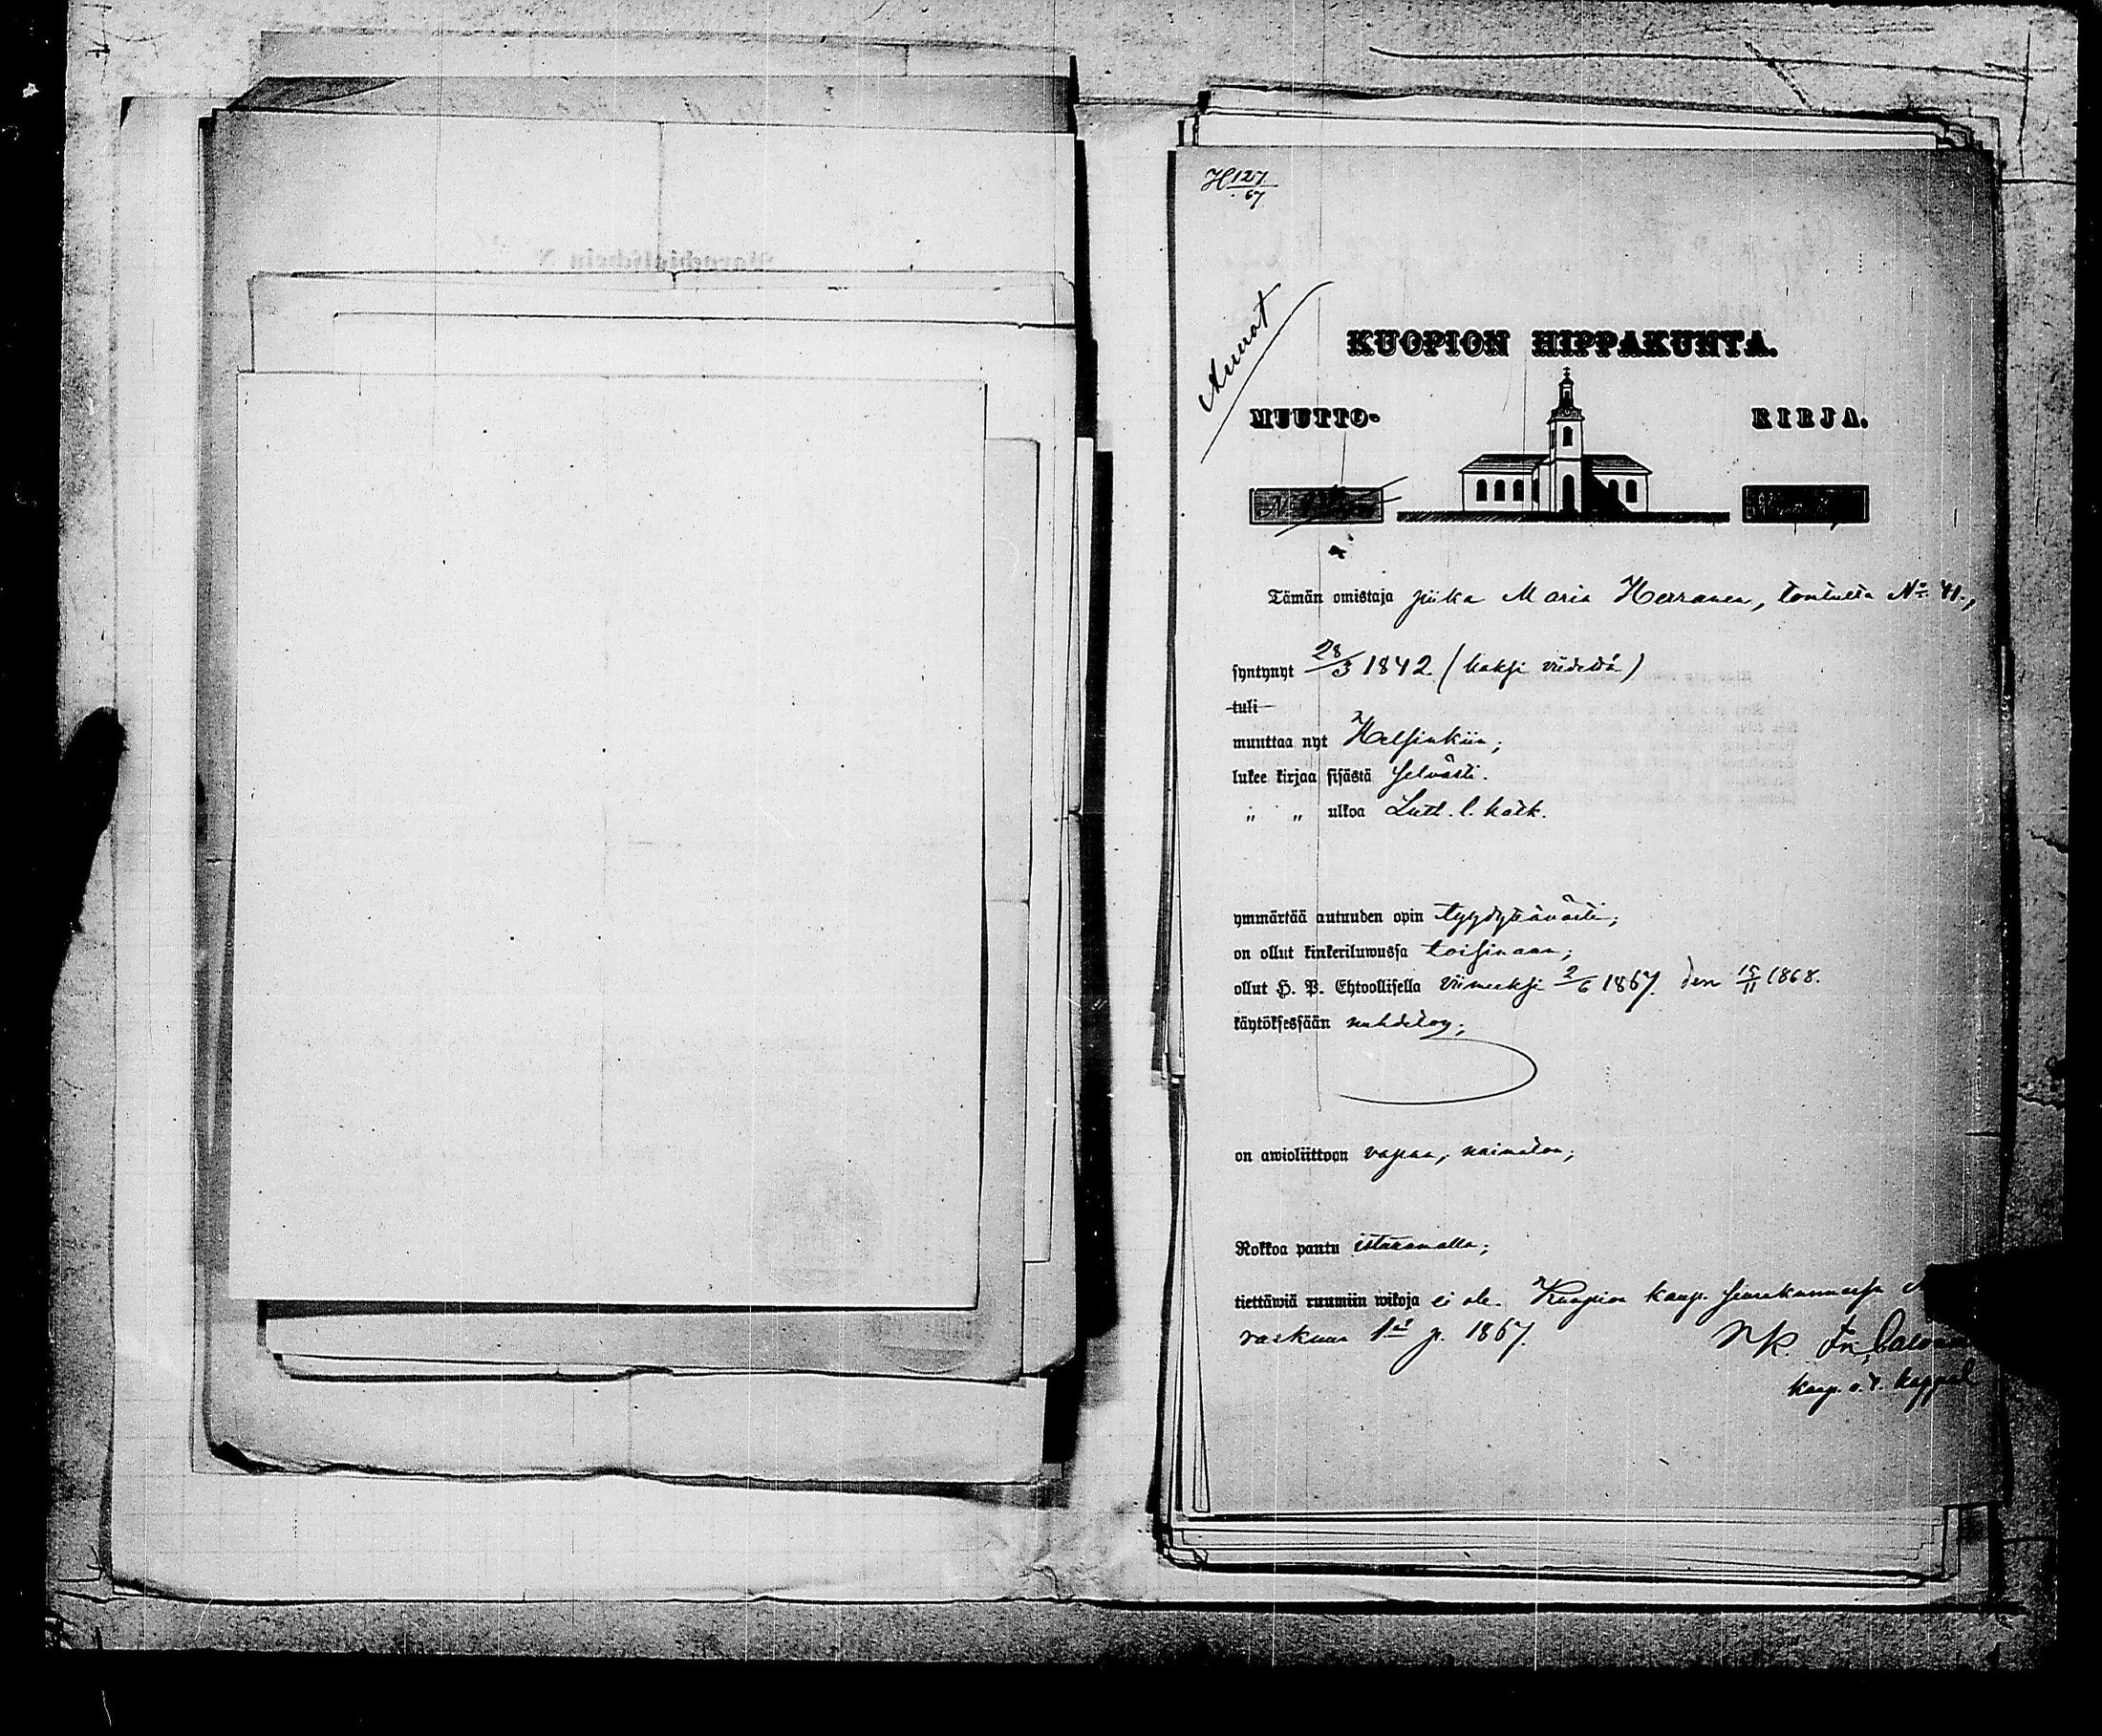 H 127/67
KUOPION HIPPAKUNTA.
MUUTTO- KIRJA.
Tämän omistaja piika Maria Herranen, tontulta No 41.,
syntynyt 28/3 1842 (kaksi viidettä)
tuli
muuttaa nyt Helsinkiin;
lukee kirjaa sisästä selvästi.
" " ulkoa Luth. l. kátk.
ymmärtää autuuden opin tyydyttävästi;
on ollut kinkeriluwussa toisinaan;
ollut H. P. Ehtoollisella viimeksi 2/6 1867. den 15/11 1868.
käytöksessään nuhdetoin;
on awioliittoon vapaa, naimatoin;
Rokkoa pantu istuttamalla;
tiettäwiä ruumiin wikoja ei ole. Kuopion kaup. seurakunnassa
raskuun 1st p. 1867.
kaup. v.t. kappal